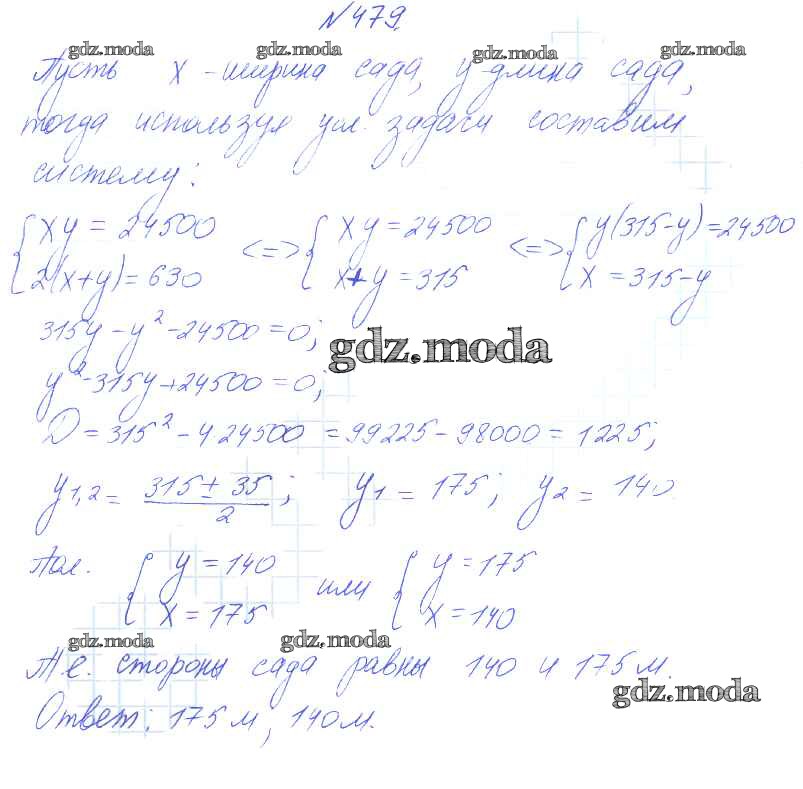 №479.
gdz.moda gdz.moda gdz.moda gdz.moda
Пусть x - ширина сада, y - длина сада,
тогда используя усл. задачи составим
систему:
{xy = 24500 <=> {xy = 24500 <=> {y(315-y)=24500
2(x+y)=630 x+y=315 x=315-y
315y-y²-24500=0;
gdz.moda
y²-315y+24500=0;
D=315²-4·24500=99225-98000=1225;
y1,2=(315±35)/2; y1=175; y2=140.
Пол. {y=140 или {y=175
x=175 x=140
gdz.moda gdz.moda
Т.е. стороны сада равны 140 и 175 м.
gdz.moda
Ответ: 175 м, 140 м.